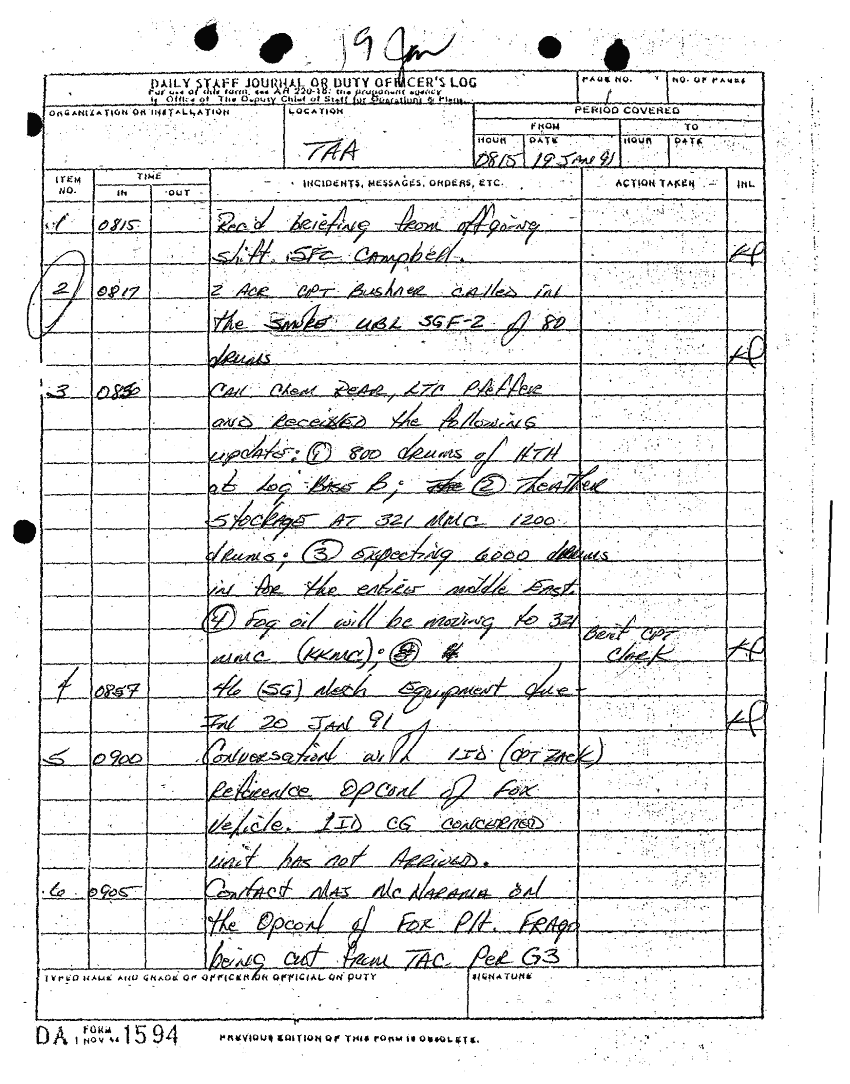 19 Jan
DAILY STAFF JOURNAL OR DUTY OFFICER'S LOG
For use of this form, see AR 220-15; the proponent agency
is Office of The Deputy Chief of Staff for Operations & Plans.
PAGE NO.
1
NO. OF PAGES
ORGANIZATION OR INSTALLATION
LOCATION
TAA
PERIOD COVERED
FROM
TO
HOUR DATE HOUR DATE
0815 19 JAN 91
ITEM NO.
TIME
IN OUT
INCIDENTS, MESSAGES, ORDERS, ETC.
ACTION TAKEN
INL
1 0815 Rec'd briefing from offgoing
shift. SFC Campbell.
2 0817 2 ACR CPT Bushner called in
the smoke UBL SGF-2 of 80
drums
3 0830 Call Chem Rear, LTC Pfeffer
and received the following
update: ① 800 drums of HTH
at Log Base B; ② Theather
Stockage AT 321 MMC 1200
drums; ③ expecting 6000 drums
in for the entire middle East.
④ Fog oil will be moving to 321
MMC (KKMC);
Brief CPT
Clark
4 0857 46 (SG) Mech Equipment due-
In 20 JAN 91
5 0900 Conversation with 1ID (CPT Zack)
Reference OPCON of Fox
Vehicle. 1ID CG concerned
unit has not Arrived.
6 0905 Contact MAJ McNamara on
the Opcon of Fox Plt. FRAGO
being cut from TAC per G3
TYPED NAME AND GRADE OF OFFICER OR OFFICIAL ON DUTY
SIGNATURE
DA FORM 1 NOV 1594
PREVIOUS EDITION OF THIS FORM IS OBSOLETE.